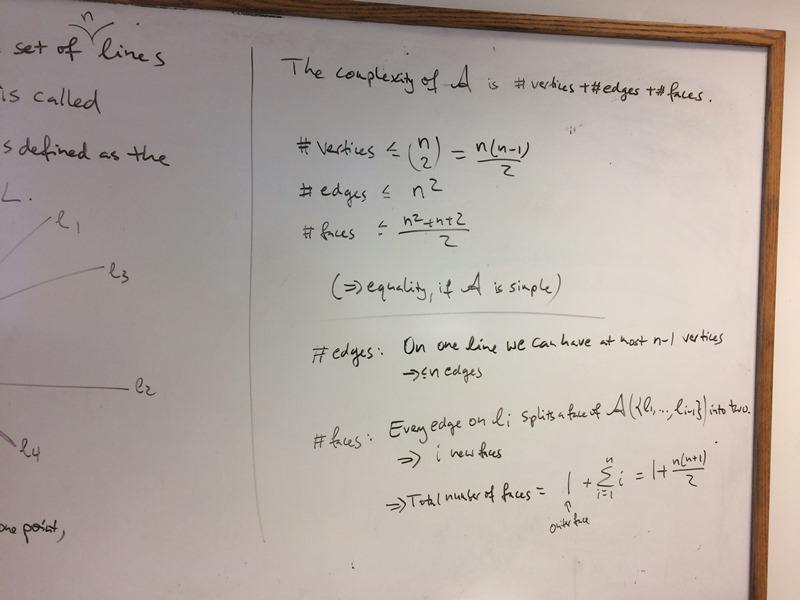 n
set of lines
is called
s defined as the
L.
l₁
l₃
l₂
l₄
one point,
The complexity of A is #vertices + #edges + #faces.
#vertices ≤ (n 2) = n(n-1)/2
#edges ≤ n²
#faces ≤ n²+n+2/2
(⇒ equality, if A is simple)
#edges: On one line we can have at most n-1 vertices
→ ≤n edges
#faces: Every edge on li splits a face of A({l₁,...,li-1}) into two.
⇒ i new faces
⇒ Total number of faces = 1 + Σ i=1 n i = 1 + n(n+1)/2
↑
face